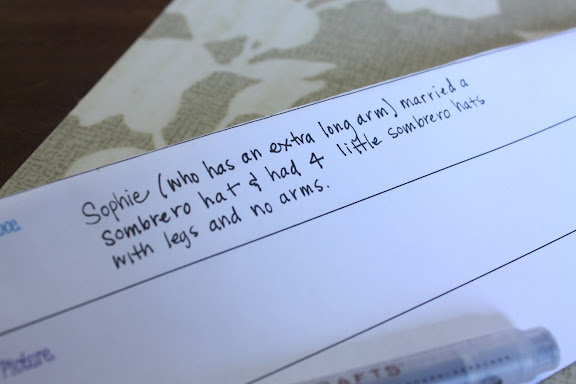 Sophie (who has an extra long arm) married a
sombrero hat & had 4 little sombrero hats
with legs and no arms.
Picture